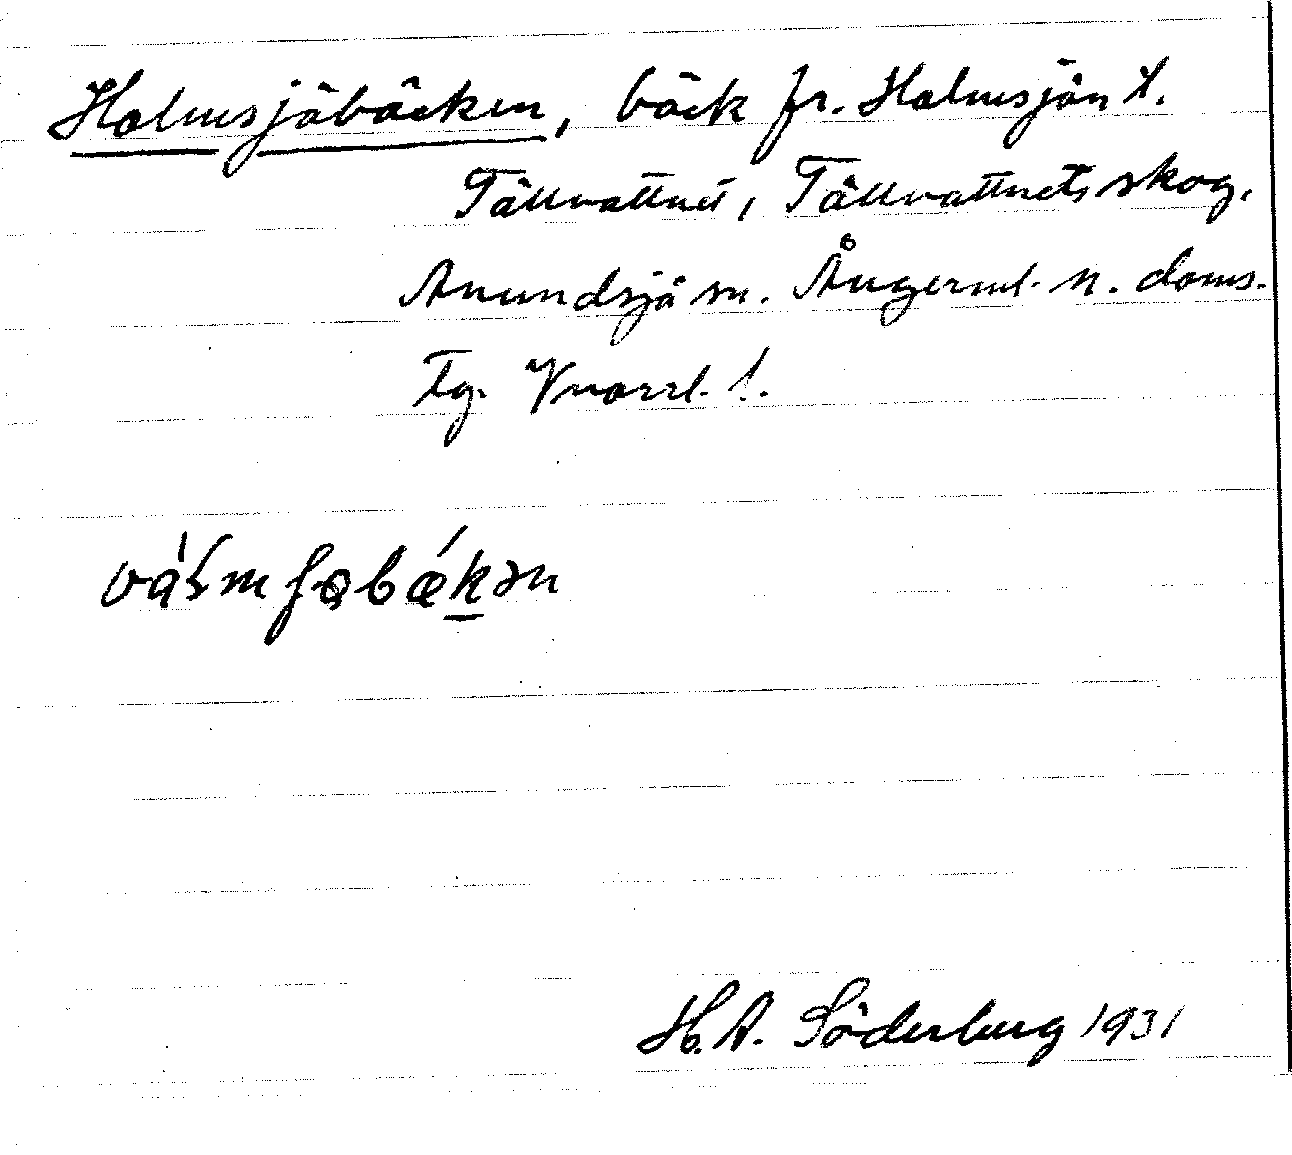 Holmsjöbäcken, bäck fr. Holmsjön t.
Tällvattnet, Tällvattnets skog.
Anundsjö sn. Ångerml. n. doms.
Tg. Vnorrl. l.
H. A. Söderberg 1931